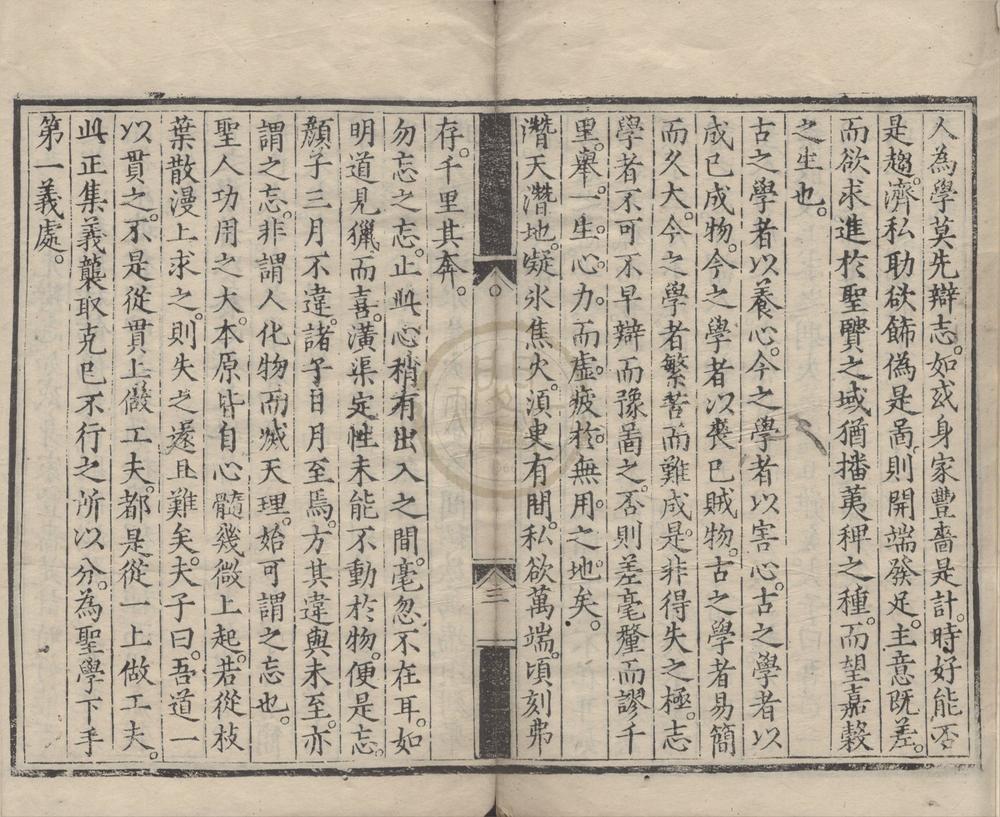 人為學莫先辯志。如或身家豐嗇是計。時好能否
是趨。濟私助欲飾偽是啚。則開端發足。主意既差。
而欲求進於聖賢之域猶播荑稗之種。而望嘉穀
之生也。
古之學者以養心。今之學者以害心。古之學者以
成已成物。今之學者以喪已賊物。古之學者易簡
而久大。今之學者繁苦而難成。是非得失之極。志
學者不可不早辯而豫啚之。否則差毫釐而謬千
里。舉一生心力。而虛疲於無用之地矣。
潛天潛地。凝氷焦火。湏叓有間。私欲萬端。頃刻弗
三
存。千里其奔。
勿忘之忘。止此心稍有出入之間。毫忽不在耳。如
明道見獵而喜。潢渠定性未能不動於物。便是忘。
顏子三月不違。諸子日月至焉。方其違與未至。亦
謂之忘。非謂人化物而滅天理。始可謂之忘也。
聖人功用之大本原皆自心髓幾微上起。若從枝
葉散漫上求之。則失之遠且難矣。夫子曰。吾道一
以貫之。不是從貫上做工夫。都是從一上做工夫。
此正集義襲取克已不行之所以分。為聖學下手
第一義處。